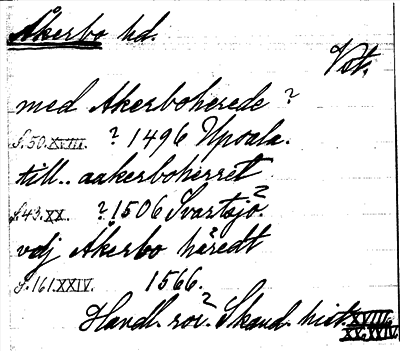 Åkerbo hd.
Vst.
med Akerboherede ?
S. 50. XVIII. ? 1496 Upsala.
till.. aakerboherret
S. 43. XX. ? 1506 Svartsjö?
vdj Åkerbo häredt
S. 161. XXIV. 1566.
Handl. rör. Skand. hist. XVIII,
XX, XXIV